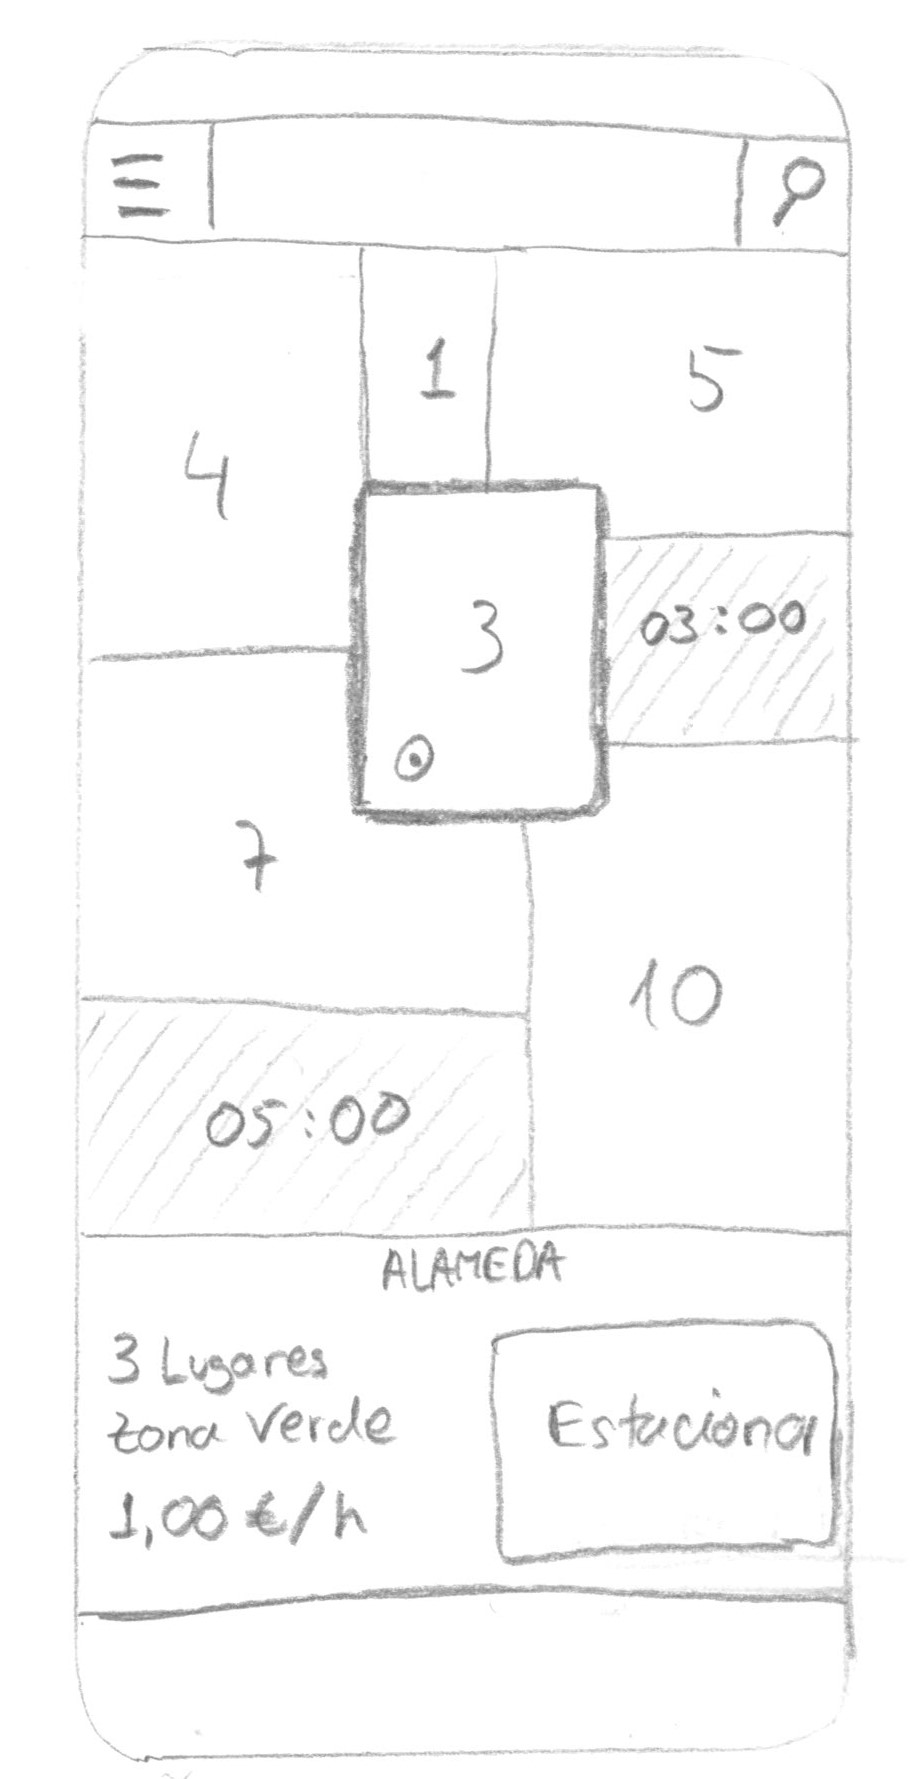 1
5
4
3
03:00
7
10
05:00
ALAMEDA
3 Lugares
Zona Verde
1,00 €/h
Estacionar